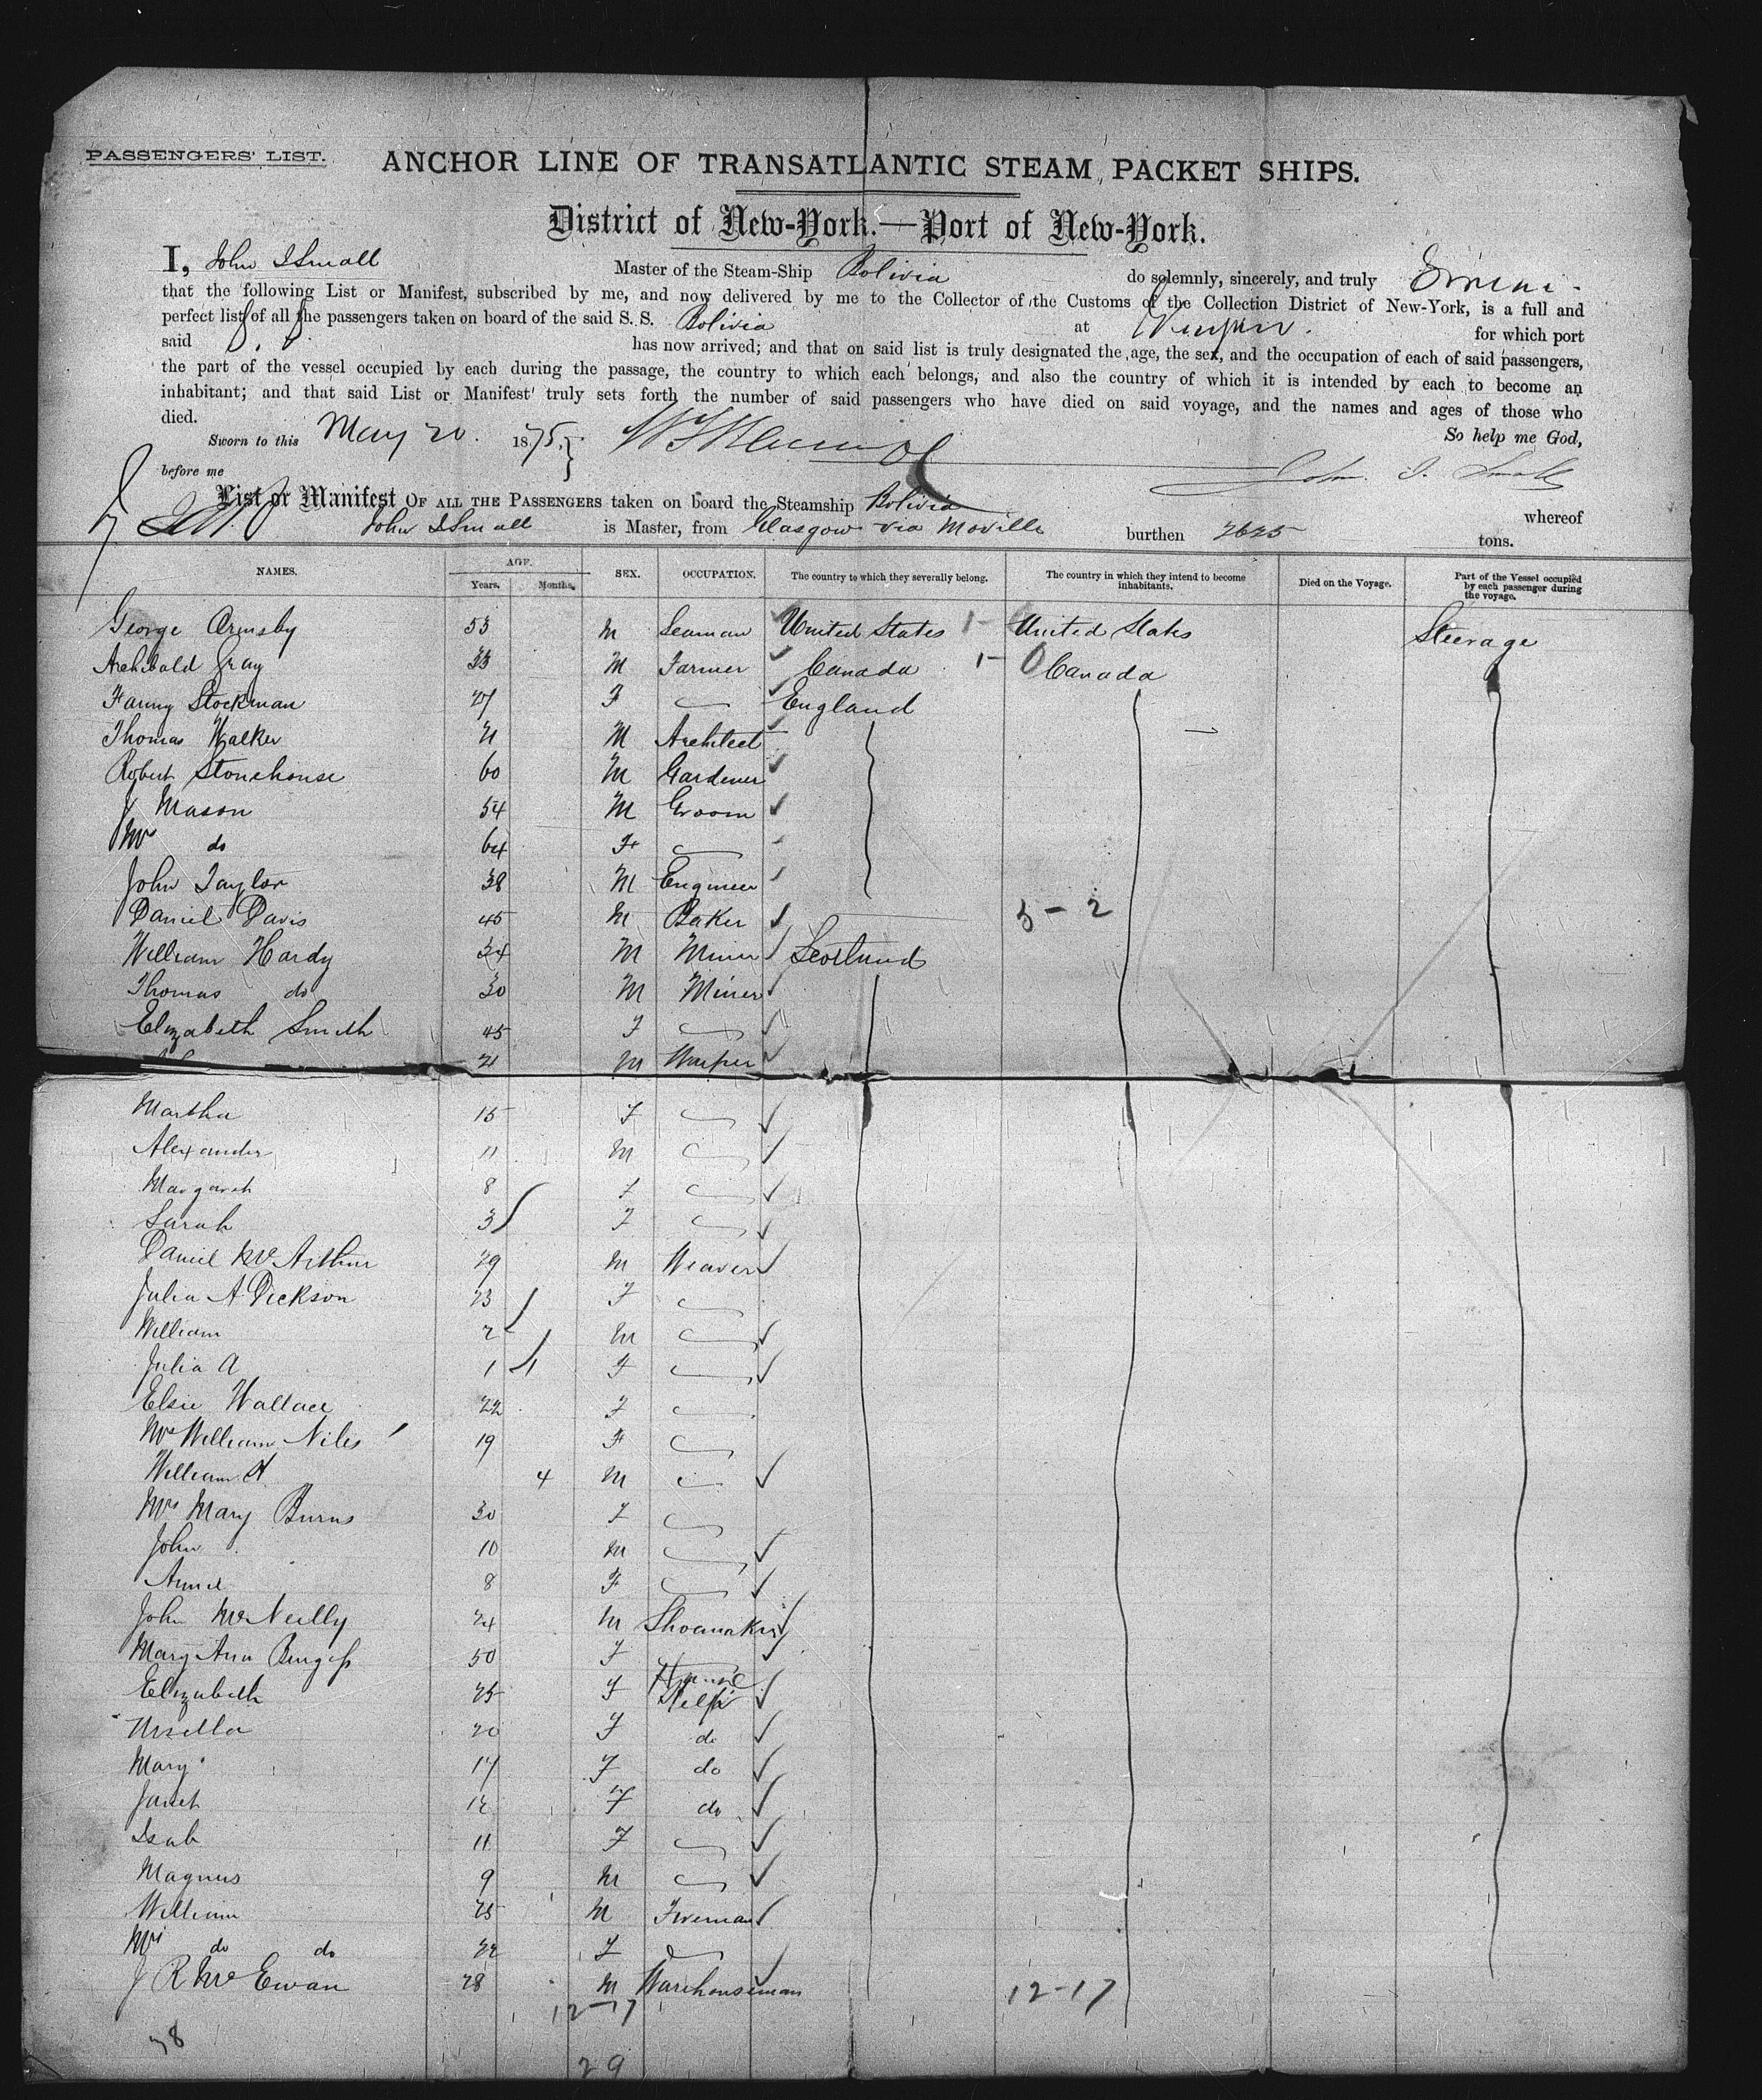 PASSENGERS' LIST.
ANCHOR LINE OF TRANSATLANTIC STEAM PACKET SHIPS.
District of New-York.—Port of New-York.
I, John S Small Master of the Steam-Ship Bolivia do solemnly, sincerely, and truly
that the following List or Manifest, subscribed by me, and now delivered by me to the Collector of the Customs of the Collection District of New-York, is a full and
perfect list of all the passengers taken on board of the said S. S. Bolivia at for which port
said has now arrived; and that on said list is truly designated the age, the sex, and the occupation of each of said passengers,
the part of the vessel occupied by each during the passage, the country to which each belongs, and also the country of which it is intended by each to become an
inhabitant; and that said List or Manifest truly sets forth the number of said passengers who have died on said voyage, and the names and ages of those who
died. So help me God,
Sworn to this May 20. 1875.
before me
List or Manifest OF ALL THE PASSENGERS taken on board the Steamship Bolivia whereof
John S Small is Master, from Glasgow via Moville burthen 2625 tons.
NAMES. AGE. Years. Months. SEX. OCCUPATION. The country to which they severally belong. The country in which they intend to become inhabitants. Died on the Voyage. Part of the Vessel occupied by each passenger during the voyage.
George Ormsby 53 M Seaman United States 1- United States Steerage
Archibald Gray 33 M Farmer Canada 1- Canada
Fanny Stockman 27 F England
Thomas Walker 21 M Architect
Robert Stonehouse 60 M Gardener
J Mason 54 M Groom
Mrs do 64 F
John Taylor 38 M Engineer
Daniel Davis 45 M Baker 5-2
William Hardy 34 M Miner Scotland
Thomas do 30 M Miner
Elizabeth Smith 45 F
21 M
Martha 15 F
Alexander 11 M
Margaret 8 F
Sarah 3 F
Daniel McArthur 29 M Weaver
Julia A Dickson 23 F
William 2 M
Julia A 1 F
Elsie Wallace 22 F
Mrs William Niles 19 F
William H 4 M
Mrs Mary Burns 30 F
John 10 M
Annie 8 F
John McNeilly 24 M Shoemaker
Mary Ann Burgess 50 F
Elizabeth 25 F House Help
Ursella 20 F do
Mary 17 F do
Janet 12 F do
Isab 11 F
Magnus 9 M
William 25 M Fireman
Mrs do do 22 F
J R McEwan 28 M Warehouseman
12-17 12-17
38
29